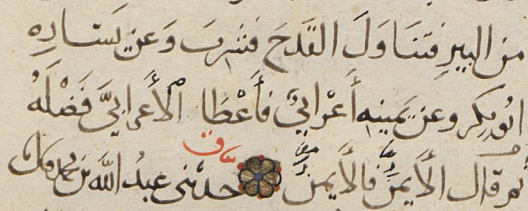 من البير فتناول القدح فشرب وعن يساره
ابو بكر وعن يمينه أعرابي فأعطا الأعرابي فضله
ثم قال الأيمن فالأيمن حدثني عبد الله بن محمد قال